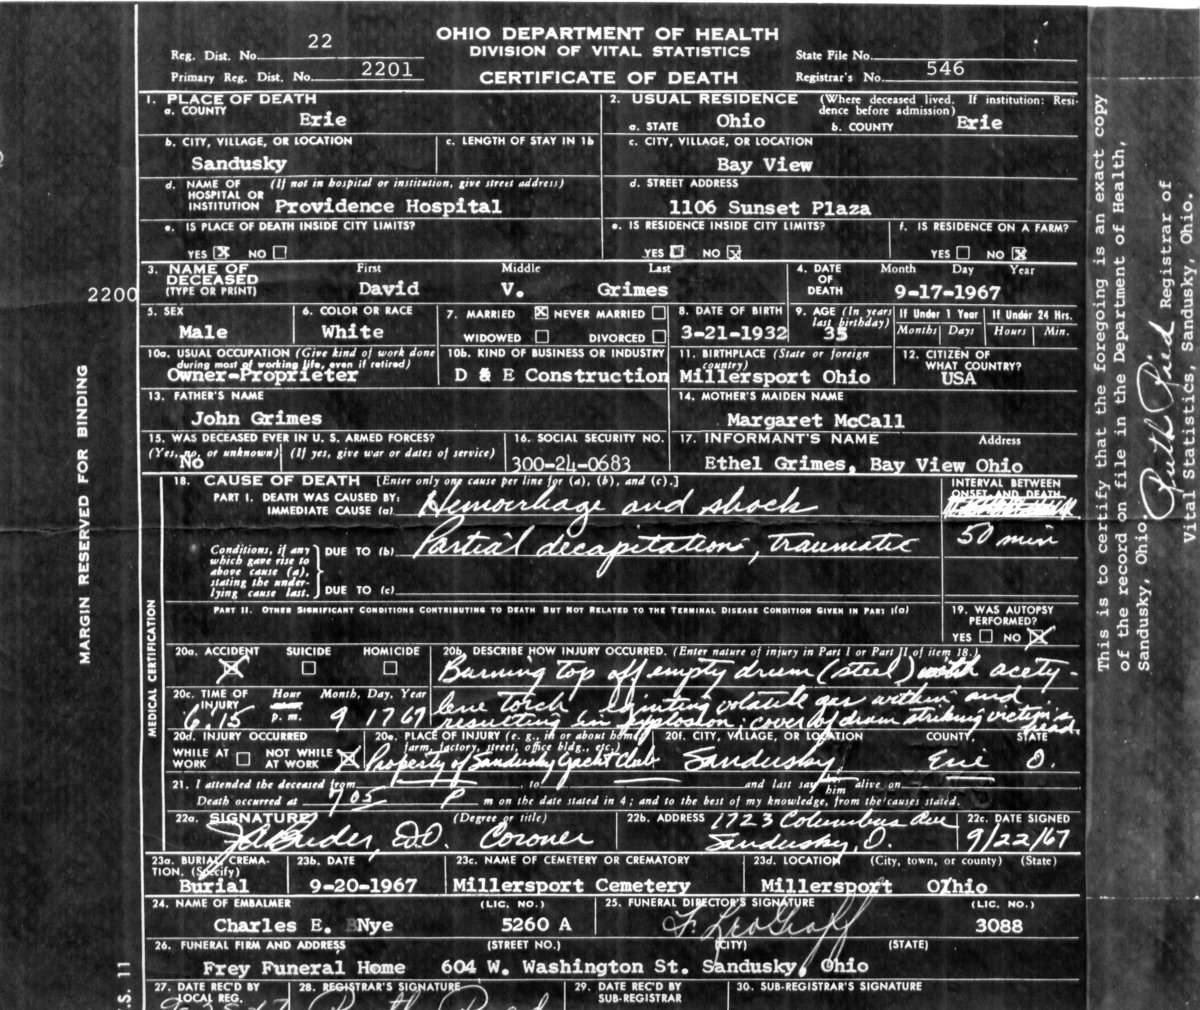 OHIO DEPARTMENT OF HEALTH
DIVISION OF VITAL STATISTICS
CERTIFICATE OF DEATH
Reg. Dist. No. 22
Primary Reg. Dist. No. 2201
State File No.
Registrar's No. 546
1. PLACE OF DEATH
a. COUNTY
Erie
2. USUAL RESIDENCE (Where deceased lived. If institution: Residence before admission)
a. STATE Ohio b. COUNTY Erie
b. CITY, VILLAGE, OR LOCATION
Sandusky
c. LENGTH OF STAY IN 1b
c. CITY, VILLAGE, OR LOCATION
Bay View
d. NAME OF HOSPITAL OR INSTITUTION (If not in hospital or institution, give street address)
Providence Hospital
d. STREET ADDRESS
1106 Sunset Plaza
e. IS PLACE OF DEATH INSIDE CITY LIMITS?
YES X NO
e. IS RESIDENCE INSIDE CITY LIMITS?
YES NO X
f. IS RESIDENCE ON A FARM?
YES NO X
2200
3. NAME OF DECEASED (TYPE OR PRINT)
First Middle Last
David V. Grimes
4. DATE OF DEATH Month Day Year
9-17-1967
5. SEX
Male
6. COLOR OR RACE
White
7. MARRIED X NEVER MARRIED
WIDOWED DIVORCED
8. DATE OF BIRTH
3-21-1932
9. AGE (In years last birthday)
35
If Under 1 Year If Under 24 Hrs.
Months Days Hours Min.
10a. USUAL OCCUPATION (Give kind of work done during most of working life, even if retired)
Owner-Proprieter
10b. KIND OF BUSINESS OR INDUSTRY
D & E Construction
11. BIRTHPLACE (State or foreign country)
Millersport Ohio
12. CITIZEN OF WHAT COUNTRY?
USA
13. FATHER'S NAME
John Grimes
14. MOTHER'S MAIDEN NAME
Margaret McCall
15. WAS DECEASED EVER IN U. S. ARMED FORCES?
(Yes, no, or unknown) (If yes, give war or dates of service)
No
16. SOCIAL SECURITY NO.
300-24-0683
17. INFORMANT'S NAME Address
Ethel Grimes, Bay View Ohio
MARGIN RESERVED FOR BINDING
MEDICAL CERTIFICATION
18. CAUSE OF DEATH [Enter only one cause per line for (a), (b), and (c).]
INTERVAL BETWEEN ONSET AND DEATH
PART I. DEATH WAS CAUSED BY:
IMMEDIATE CAUSE (a) Hemorrhage and shock
Conditions, if any which gave rise to above cause (a), stating the underlying cause last.
DUE TO (b) Partial decapitation, traumatic 50 min
DUE TO (c)
PART II. OTHER SIGNIFICANT CONDITIONS CONTRIBUTING TO DEATH BUT NOT RELATED TO THE TERMINAL DISEASE CONDITION GIVEN IN PART I(a)
19. WAS AUTOPSY PERFORMED?
YES NO X
20a. ACCIDENT SUICIDE HOMICIDE
X
20b. DESCRIBE HOW INJURY OCCURRED. (Enter nature of injury in Part I or Part II of item 18.)
Burning top off empty drum (steel) with acety-
lene torch igniting volatile gas within and
resulting in explosion; cover of drum striking victim's head.
20c. TIME OF INJURY Hour Month, Day, Year
6:15 p. m. 9 17 67
20d. INJURY OCCURRED
WHILE AT WORK NOT WHILE AT WORK X
20e. PLACE OF INJURY (e. g., in or about home, farm, factory, street, office bldg., etc.)
Property of Sandusky Yacht Club
20f. CITY, VILLAGE, OR LOCATION COUNTY, STATE
Sandusky, Erie O.
21. I attended the deceased from , to and last saw her him alive on
Death occurred at 7 05 P m on the date stated in 4; and to the best of my knowledge, from the causes stated.
22a. SIGNATURE (Degree or title)
D.O. Coroner
22b. ADDRESS 1723 Columbus Ave
Sandusky, O.
22c. DATE SIGNED
9/22/67
23a. BURIAL, CREMATION. (Specify)
Burial
23b. DATE
9-20-1967
23c. NAME OF CEMETERY OR CREMATORY
Millersport Cemetery
23d. LOCATION (City, town, or county) (State)
Millersport Ohio
24. NAME OF EMBALMER (LIC. NO.)
Charles E. Nye 5260 A
25. FUNERAL DIRECTOR'S SIGNATURE (LIC. NO.)
3088
26. FUNERAL FIRM AND ADDRESS (STREET NO.) (CITY) (STATE)
Frey Funeral Home 604 W. Washington St. Sandusky, Ohio
27. DATE REC'D BY LOCAL REG.
28. REGISTRAR'S SIGNATURE
29. DATE REC'D BY SUB-REGISTRAR
30. SUB-REGISTRAR'S SIGNATURE
.S. 11
This is to certify that the foregoing is an exact copy
of the record on file in the Department of Health,
Sandusky, Ohio.
Registrar of
Vital Statistics, Sandusky, Ohio.